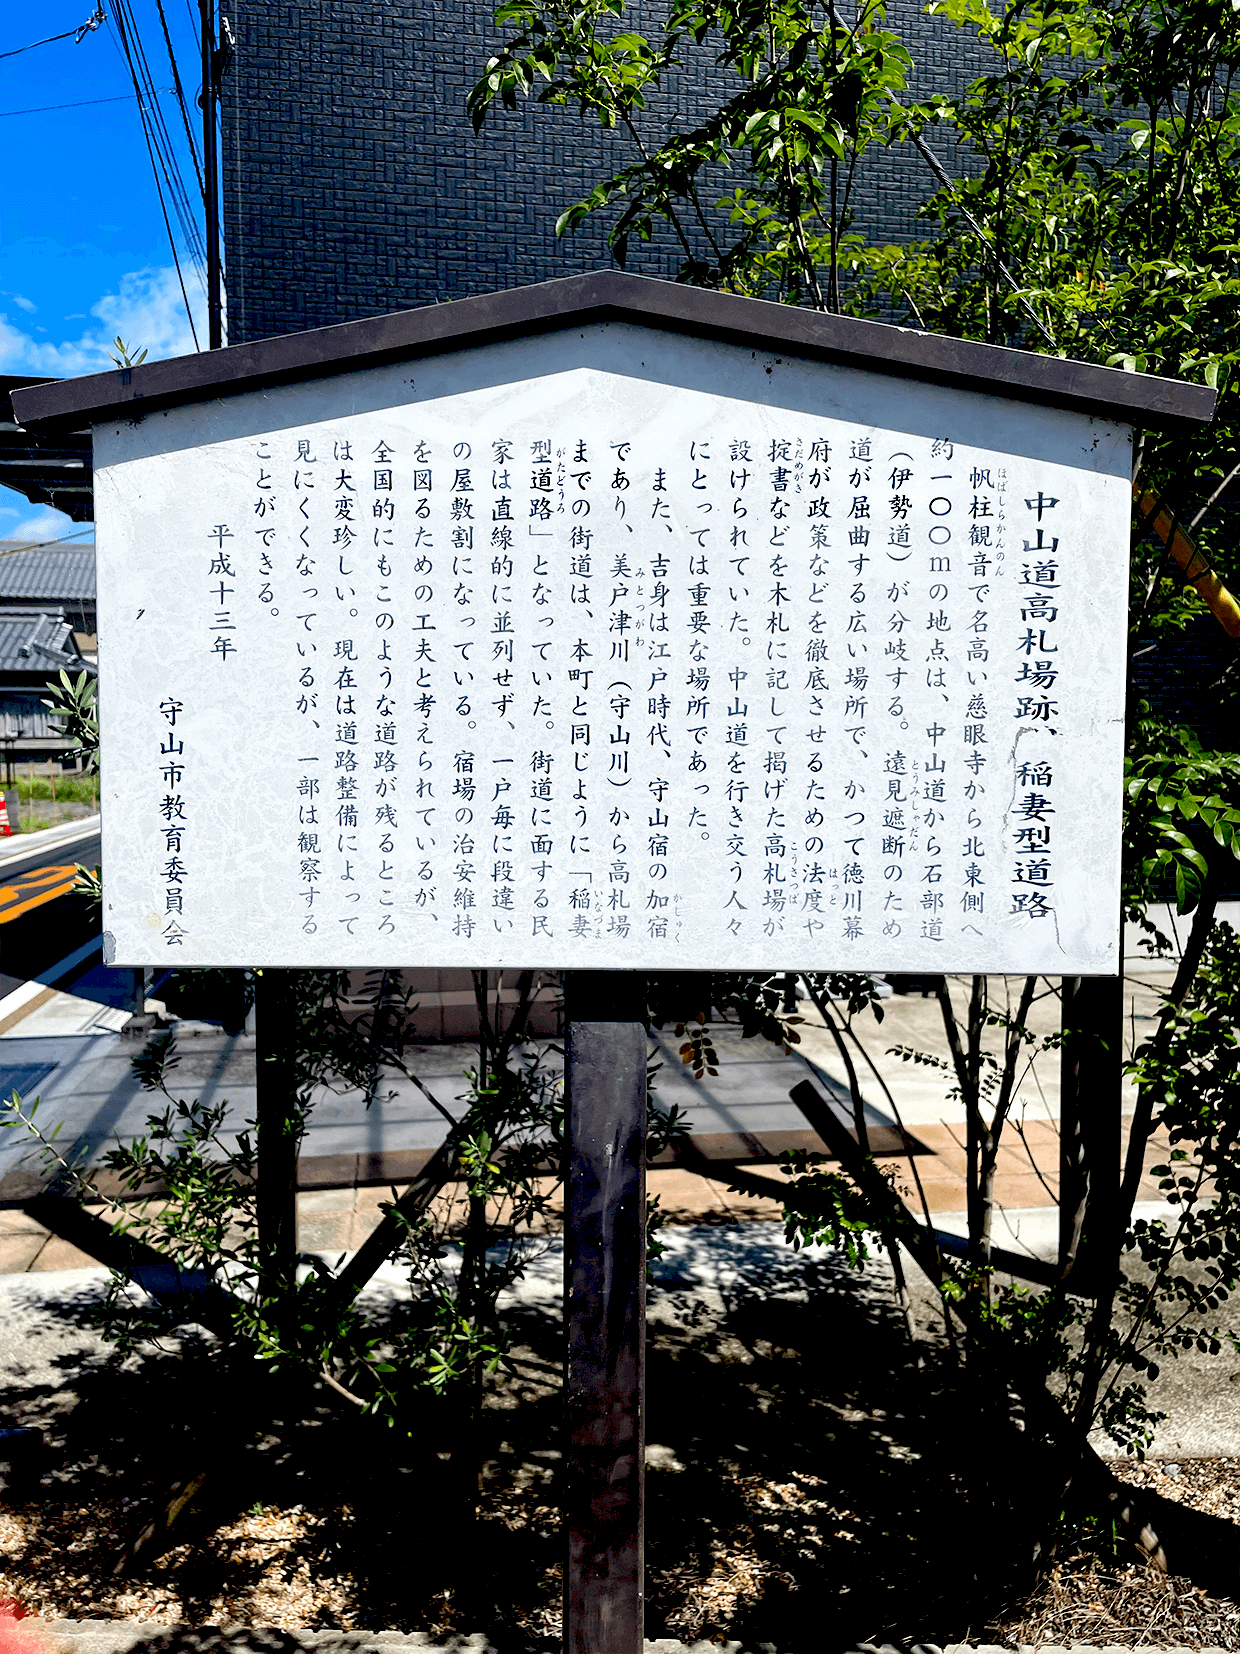 中山道高札場跡、稲妻型道路
帆柱観音で名高い慈眼寺から北東側へ
約一〇〇mの地点は、中山道から石部道
(伊勢道)が分岐する。遠見遮断のため
道が屈曲する広い場所で、かつて徳川幕
府が政策などを徹底させるための法度や
掟書などを木札に記して掲げた高札場が
設けられていた。中山道を行き交う人々
にとっては重要な場所であった。
また、吉身は江戸時代、守山宿の加宿
であり、美戸津川(守山川)から高札場
までの街道は、本町と同じように「稲妻
型道路」となっていた。街道に面する民
家は直線的に並列せず、一戸毎に段違い
の屋敷割になっている。宿場の治安維持
を図るための工夫と考えられているが、
全国的にもこのような道路が残るところ
は大変珍しい。現在は道路整備によって
見にくくなっているが、一部は観察する
ことができる。
平成十三年
守山市教育委員会